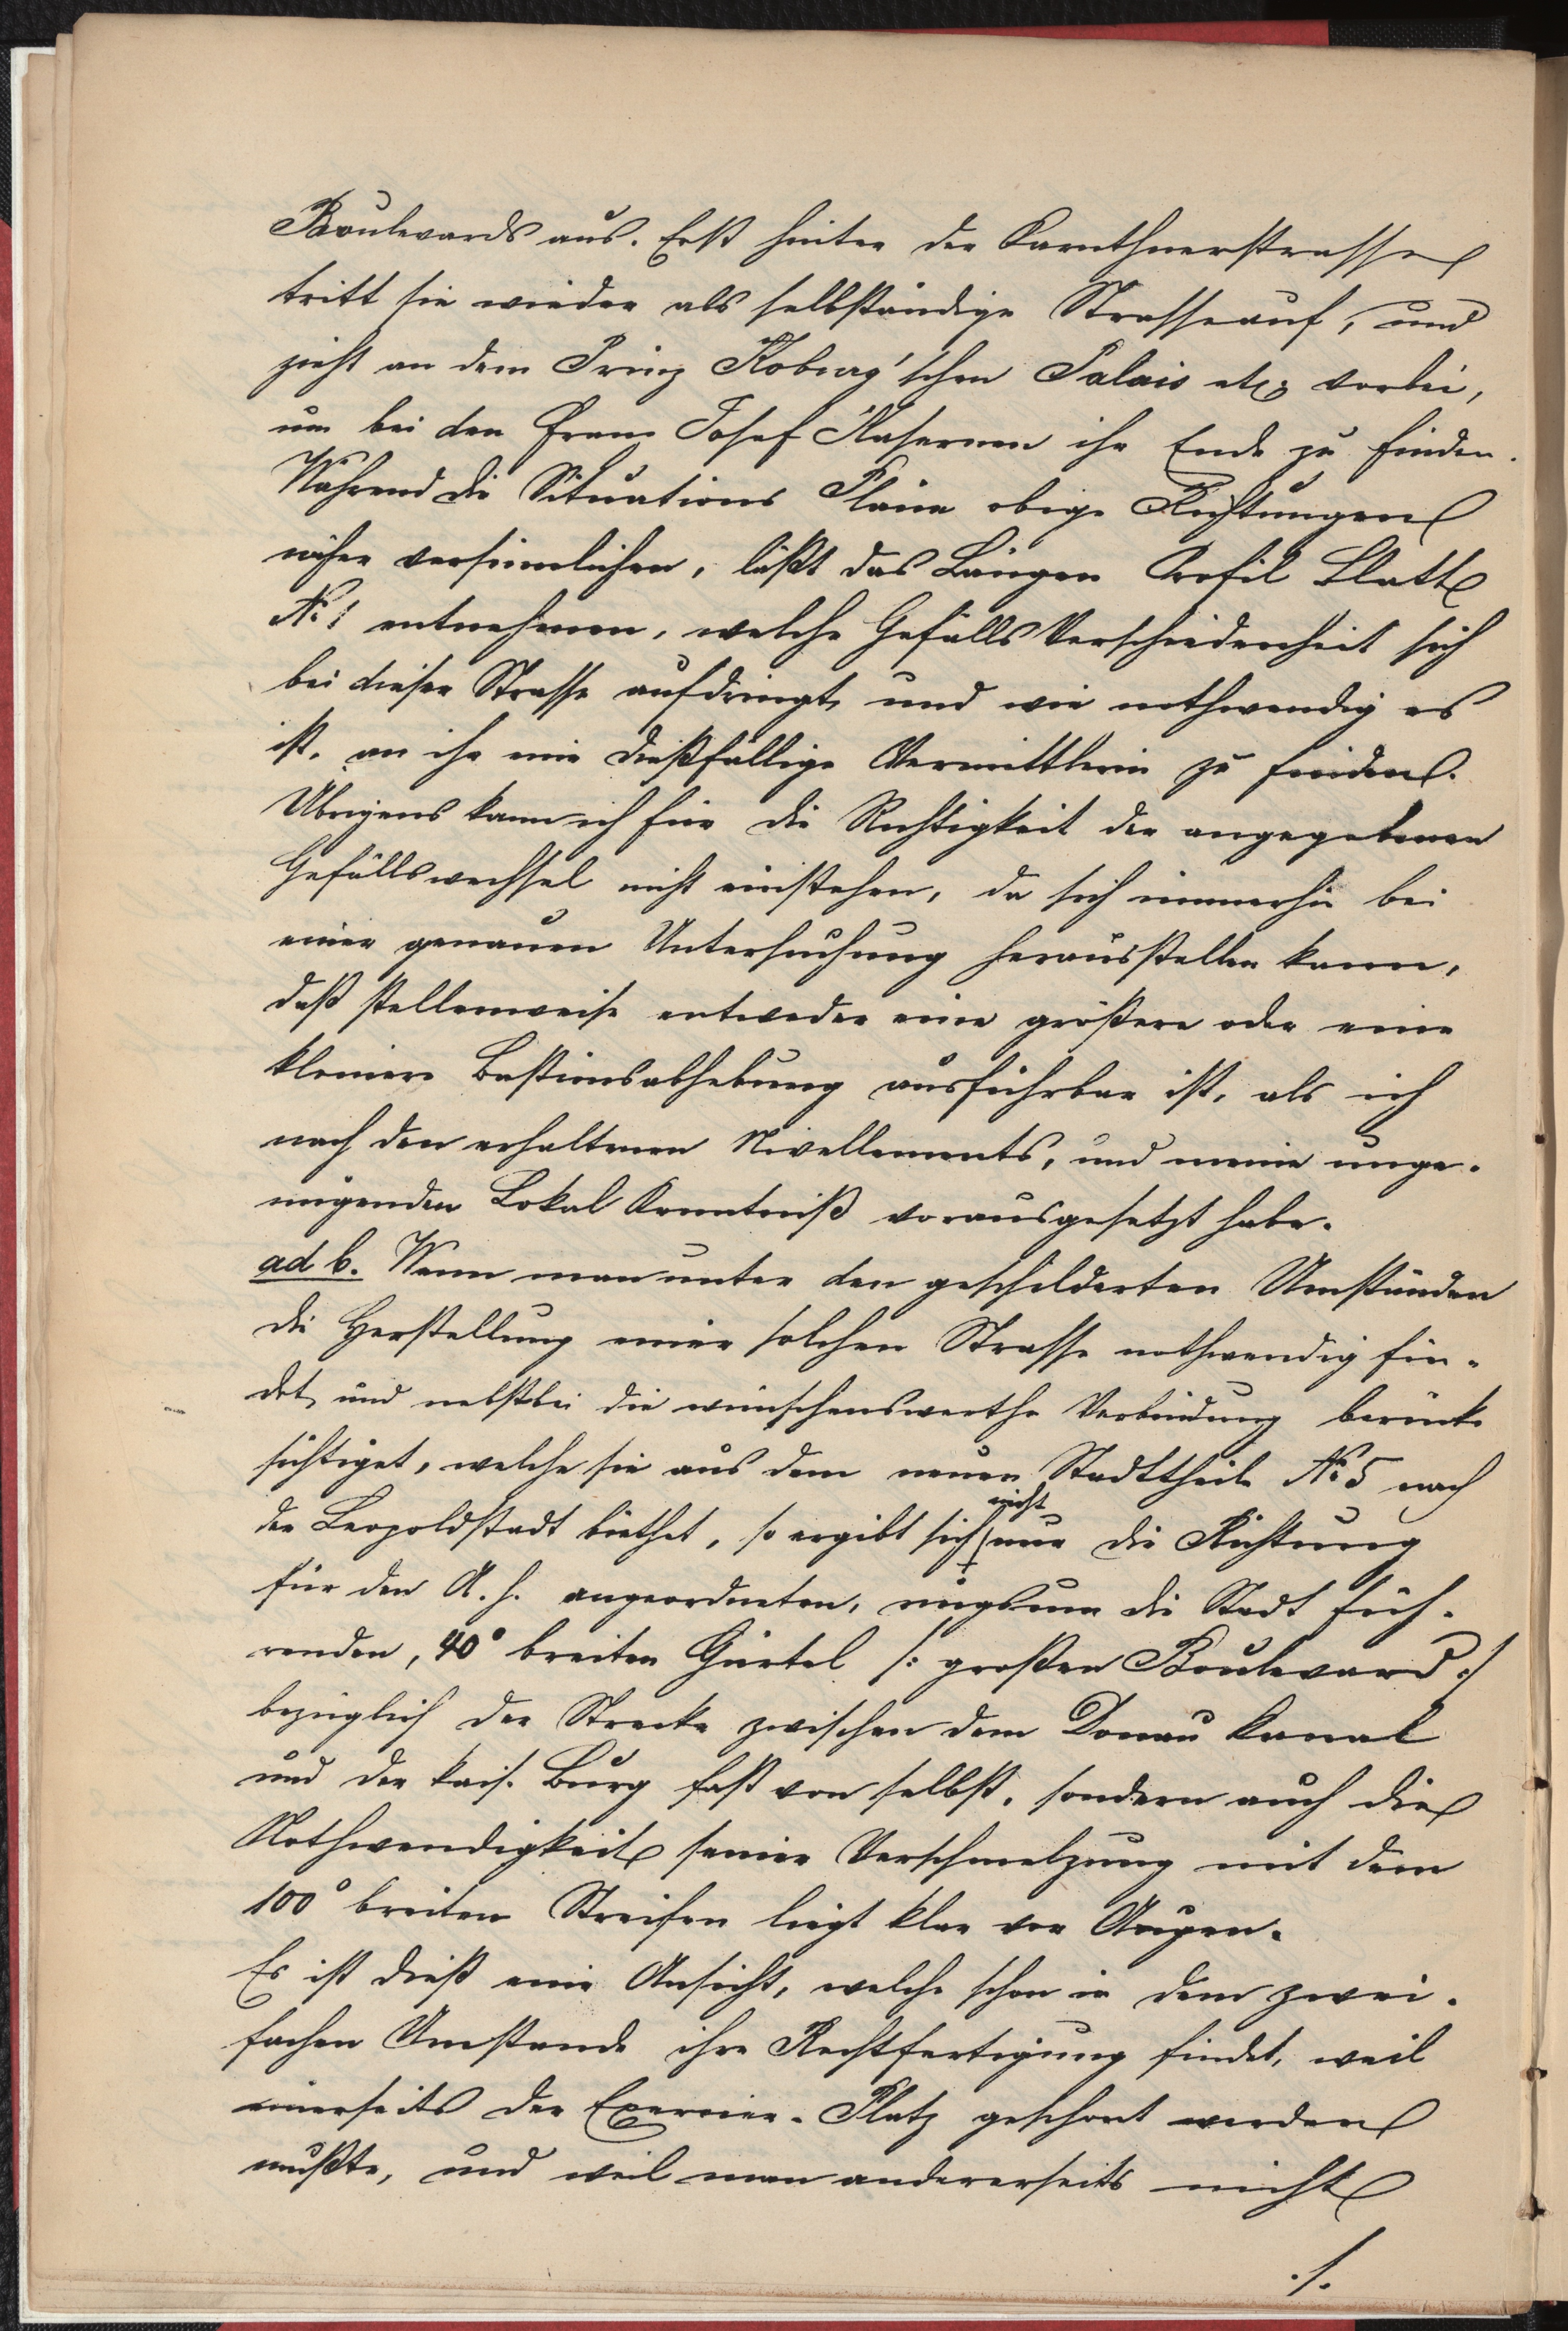 Boulevards aus. Erst hinter der Karnthnerstrasse
tritt sie wieder als selbständige Strasse auf, und
zieht an dem Prinz Koburg'schen Palais etc. vorbei,
um bei den Franz Josef Kasernen ihr Ende zu finden.
Während die Situations Pläne obige Richtungen
näher versinnlichen, läßt das Längen Profil Blatt
No 1 entnehmen, welche Gefälls Verschiedenheit sich
bei dieser Strasse aufdringt, und wie nothwendig es
ist, an ihr eine dießfällige Vermittlerin zu finden.
Übrigens kann ich für die Richtigkeit der angegebenen
Gefällswechsel nicht einstehen, da sich immerhin bei
einer genauen Untersuchung herausstellen kann,
daß stellenweise entweder eine größere oder eine
kleinere Bastionsabhebung ausführbar ist, als ich
nach den erhaltenen Nivellements, und meine unge-
nügenden Lokal Kenntniß vorausgesetzt habe.
ad b. Wenn man unter den geschilderten Umständen
die Herstellung einer solchen Strasse nothwendig fin-
det, und nebstbei die wünschenswerthe Verbindung berück-
sichtiget, welche sie aus dem neuen Stadttheile No 5 nach
der Leopoldstadt biethet, so ergibt sich nicht nur die Richtung
für den A. h. angeordneten, ringsum die Stadt füh-
renden, 40° breiten Gürtel /: großen Boulevard :/
bezüglich der Strecke zwischen dem Donau Kanal
und der kais. Burg fast von selbst, sondern auch die
Nothwendigkeit seiner Verschmelzung mit dem
100° breiten Streifen liegt klar vor Augen.
Es ist dieß eine Ansicht, welche schon in dem zwei-
fachen Umstande ihre Rechtfertigung findet, weil
einerseits der Exercier-Platz geschont werden
mußte, und weil man andererseits nicht
./.